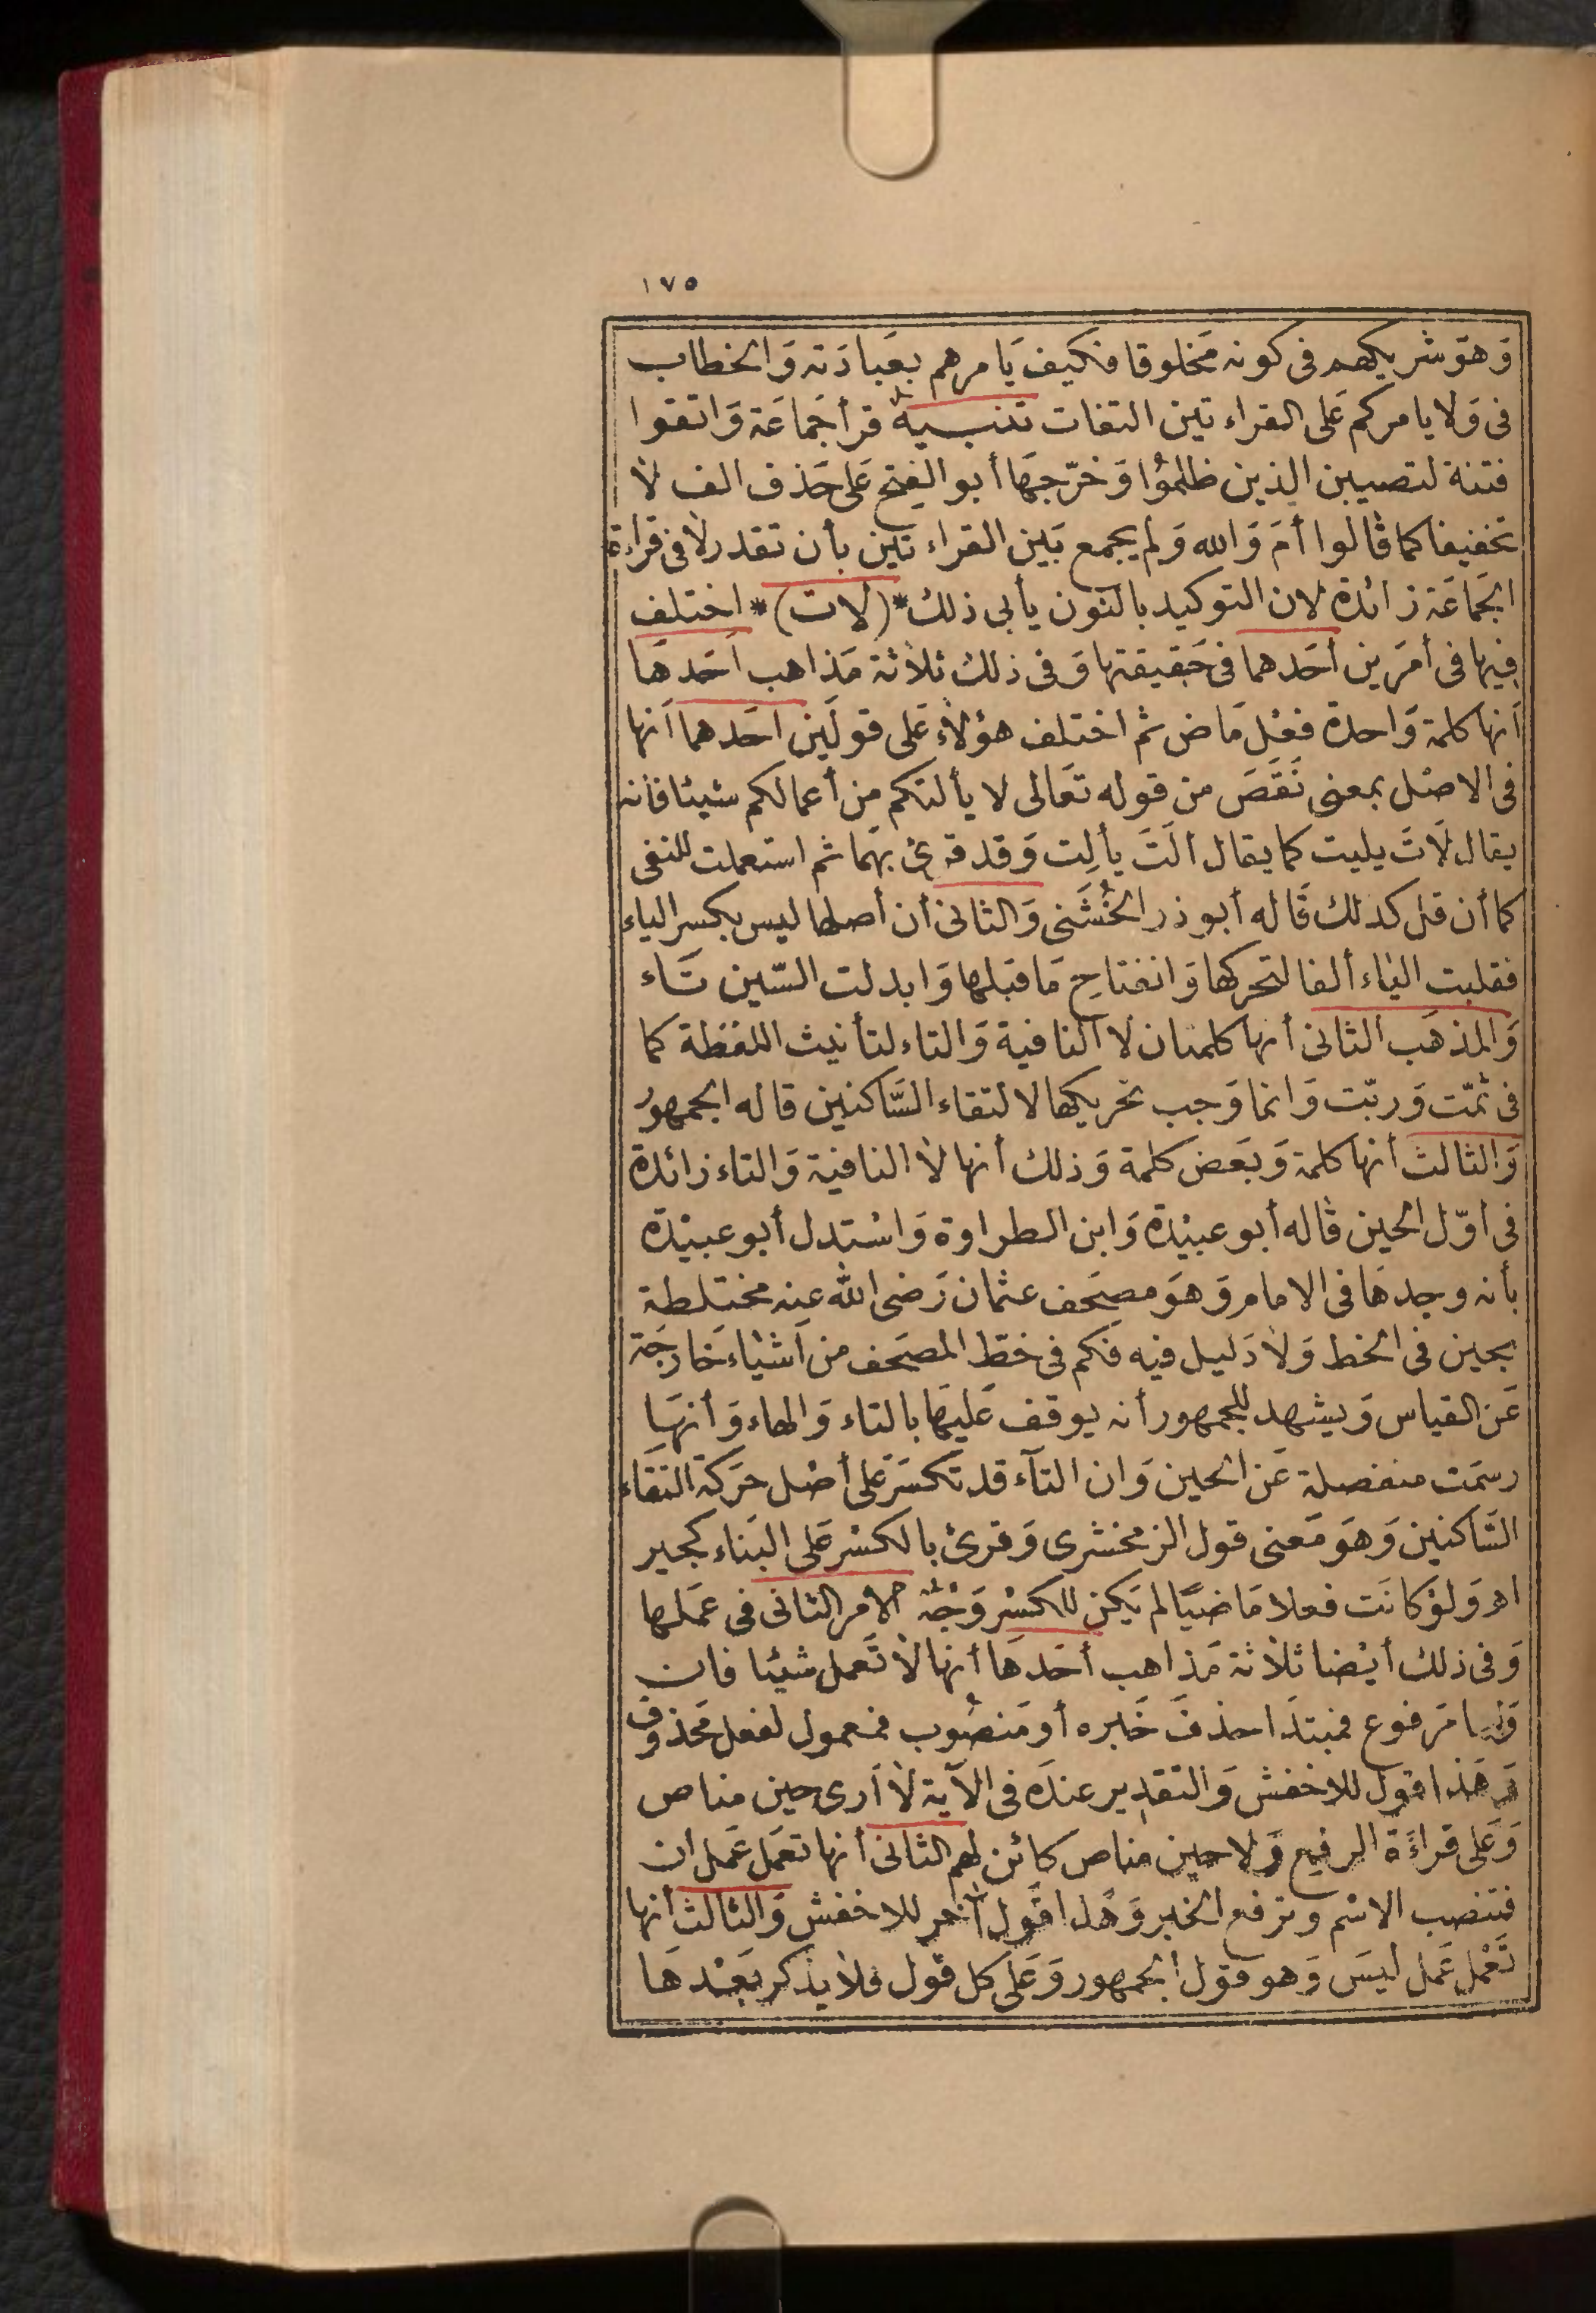 ١٧٥
وَهوَ شريكهم فى كونه مَخلوقا فكيف يَامرهم بعبادَته وَالخطاب
فى وَلا يامركم عَلى القراءتين التفات تنبيه قرأ جَماعَة وَاتقوا
فتنة لتصيبن الذين ظلمُوا وَخرّجهَا أبو الفتح عَلى حَذف الف لا
تخفيفا كما قالوا أمَ وَالله وَلم يجمع بَين القراءتين بأن تقدر لا فى قراءة
الجَماعَة زائدة لان التوكيد بالنون يأبى ذلك *(لات)* اختلف
فيها فى أمرَين أحَدهما فى حَقيقتها وَفى ذلك ثلاثة مَذاهب أحَدهَا
أنها كلمة وَاحدة فعْل مَاض ثم اختلف هؤلاء عَلى قولَين احَدهما أنها
فى الاصْل بمعنى نَقَصَ من قوله تعَالى لا يألتكم من أعمالكم شيئا فانه
يقال لَاتَ يليت كما يقال ألَتَ يألِت وَقد قرئ بهمَا ثم استعملت للنفى
كما أن قل كذلك قَاله أبو ذر الخُشَنى وَالثانى أن أصلها ليس بكسر الياء
فقلبت الياء ألفا لتحركها وَانفتاح مَا قبلها وَابدلت السّين تَاء
وَالمذهَب الثانى أنها كلمتان لا النافية وَالتاء لتأنيث اللفظة كما
فى ثمّت وَربّت وَانما وَجب تحريكها لالتقاء السَّاكنين قاله الجمهورُ
وَالثالث أنها كلمة وَبَعض كلمة وَذلك أنها لا النافية وَالتاء زائدة
فى اوّل الحين قاله أبو عبيْدة وَابن الطراوة وَاسْتدل أبو عبيْدة
بأنه وجدهَا فى الامام وَهوَ مصحَف عثمان رَضى الله عنه مختلطة
بحين فى الخط وَلا دَليل فيه فكم فى خط المصحَف من أشياء خارجَة
عَن القياس وَيشهد للجمهور أنه يوقف عَليهَا بالتاء وَالهاء وَأنهَا
رسمَت منفصلة عَن الحين وَان التاء قد تكسَر عَلى أصْل حرَكة التقاء
السَّاكنين وَهوَ مَعنى قول الزمخشرى وَقرئ بالكسْر عَلى البنَاء كجير
اهـ وَلوْ كانَت فعلا مَاضيًا لم يَكن للكسْر وَجْهٌ الامر الثانى فى عَمَلها
وَفى ذلك أيْضا ثلاثة مَذاهب أحَدهَا أنها لا تَعمل شيئا فان
وَليهَا مَرفوع فمبتدَا حذفَ خَبره أو مَنصُوب فمعمول لفعل مَحذوف
وَهَذا قول للاخفش وَالتقدير عندَه فى الآية لا أرى حين مناص
وَعَلى قراءَة الرفع وَلا حين مناص كائن لهم الثانى أنها تعمَل عَمل ان
فتنصب الاسْم وترفع الخبر وَهَذا قول آخر للاخفش وَالثالث أنها
تَعْمل عَمل ليسَ وَهو قول الجمهور وَعَلى كل قول فلا يذكر بَعْدهَا